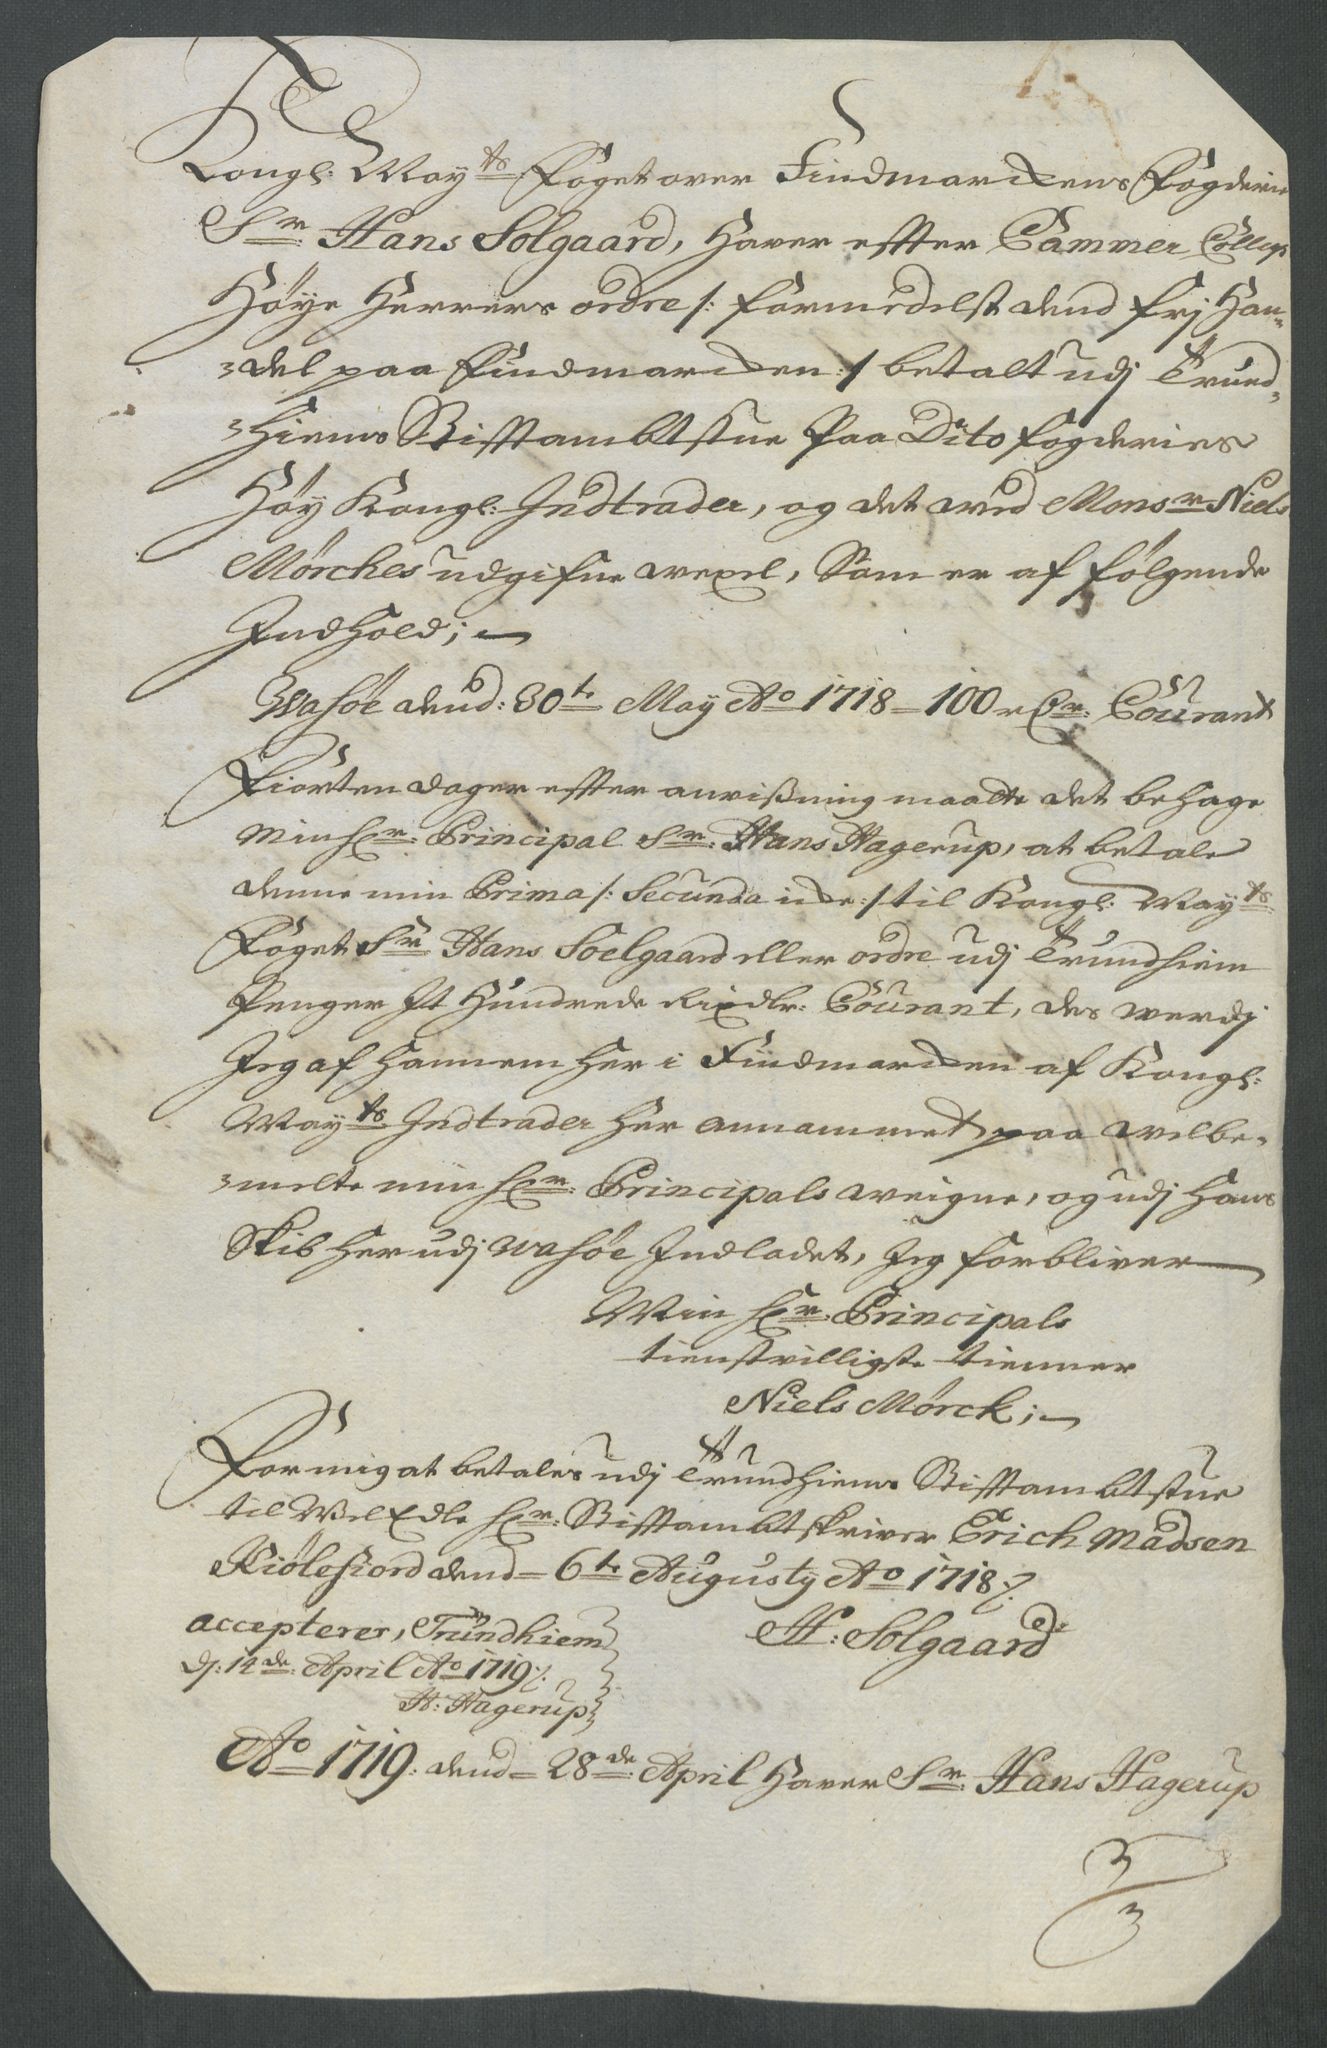 Kongl: May:ts Foget over Findmarckens Fogderie
Sr: Hans Solgaard, Haver effter Cammer Collegi
Høye Herrers ordre /: formedelst dend frj Han-
-del paa Findmarcken :/ betalt udj Trund-
-hiems Stifftambtstue Paa Dito fogderies
Høy Kongl: Indtrader, og det wed Monsr: Niels
Mørches udgifne wexel, Som er af følgende
Indhold; -
Wasöe dend: 30te May Ao 1718 - 100 r Cr: Courant
Fiorten dager effter anvißning maatte det behage
min Hr: Principal Sr: Hans Hagerup, at betale
denne min Prima /: Secunda icke :/ til Kongl: May:ts
Foget Sr: Hans Soelgaard eller ordre udj Trundhiem
Penger It Hundrede Rixdlr: Courant, des werdj
Jeg af hannem her i Findmarcken af Kongl:
May:ts Indtrader her annammet paa welbe-
-melte min Hr: Principals weigne, og udj hans
Skib her udj Wasöe Indladet, Jeg forbliver
Min Hr: Principals
tienstvilligste tienner
Niels Mørck; -
For mig at betales udj Trundhiems Stifftambtstue
til WelEdle Hr: Stifftambtskriver Erich Madsen
Kiølefiord dend - 6te Augusty Ao 1718 ./.
accepterer, Trundhiem
H: Solgaard
dj: 14de: April Ao 1719 ./.
H: Hagerup
Ao 1719: dend - 28de: April Haver Sr: Hans Hagerup